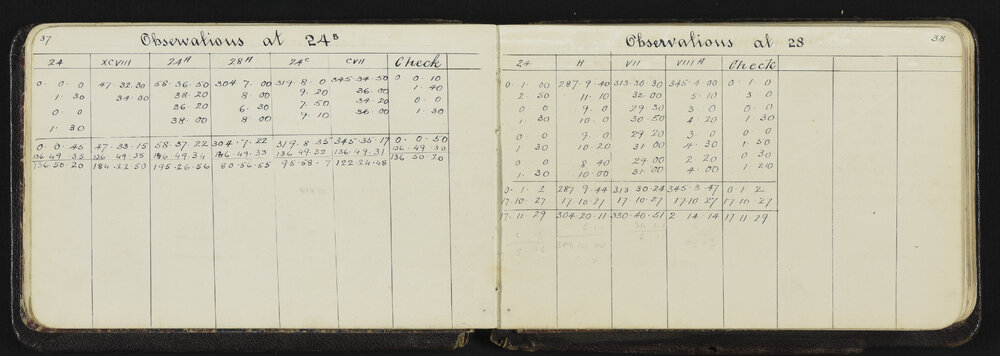 37
Observations at 24ᴮ
24 XCVIII 24ᴬ 28ᴬ 24ᶜ CVII Check
0. 0. 0 47. 32. 30 58. 36. 50 304. 7. 00 319. 8. 0 345. 34. 50 0. 0. 10
1. 30 34. 00 38. 20 8. 00 9. 20 36. 00 1. 40
0. 0 36. 20 6. 30 7. 50 34. 20 0. 0
1. 30 38. 00 8. 00 9. 10 36. 00 1. 30
0. 0. 45 47. 33. 15 58. 37. 22 304. 7. 22 319. 8. 35 345. 35. 17 0. 0. 50
136. 49. 35 136. 49. 35 136. 49. 34 136. 49. 33 136. 49. 32 136. 49. 31 136. 49. 30
136. 50. 20 184. 22. 50 195. 26. 56 80. 56. 55 95. 58. 7 122. 24. 48 136. 50. 20
38
Observations at 28
24 H VII VIII A Check
0. 1. 00 287. 9. 40 313. 30. 30 345. 4. 00 0. 1. 0
2. 50 11. 0 32. 00 5. 10 3. 0
0. 0 9. 0 29. 30 3. 0 0. 0
1. 0 10. 0 30. 50 4. 20 1. 30
0 0 9. 0 29. 20 3. 0 0. 0
1 30 10. 20 31. 00 4. 30 1. 50
0 0 8. 40 29. 00 2 20 0. 30
1. 30 10. 00 31. 00 4. 00 1. 20
0. 1. 2 287. 9. 44 313 30. 24 345. 3. 47 0. 1. 2
17. 10. 27 17. 10. 27 17. 10. 27 17. 10. 27 17. 10. 27
17. 11. 29 304. 20. 11 330. 40. 51 2. 14. 14 17. 11. 29